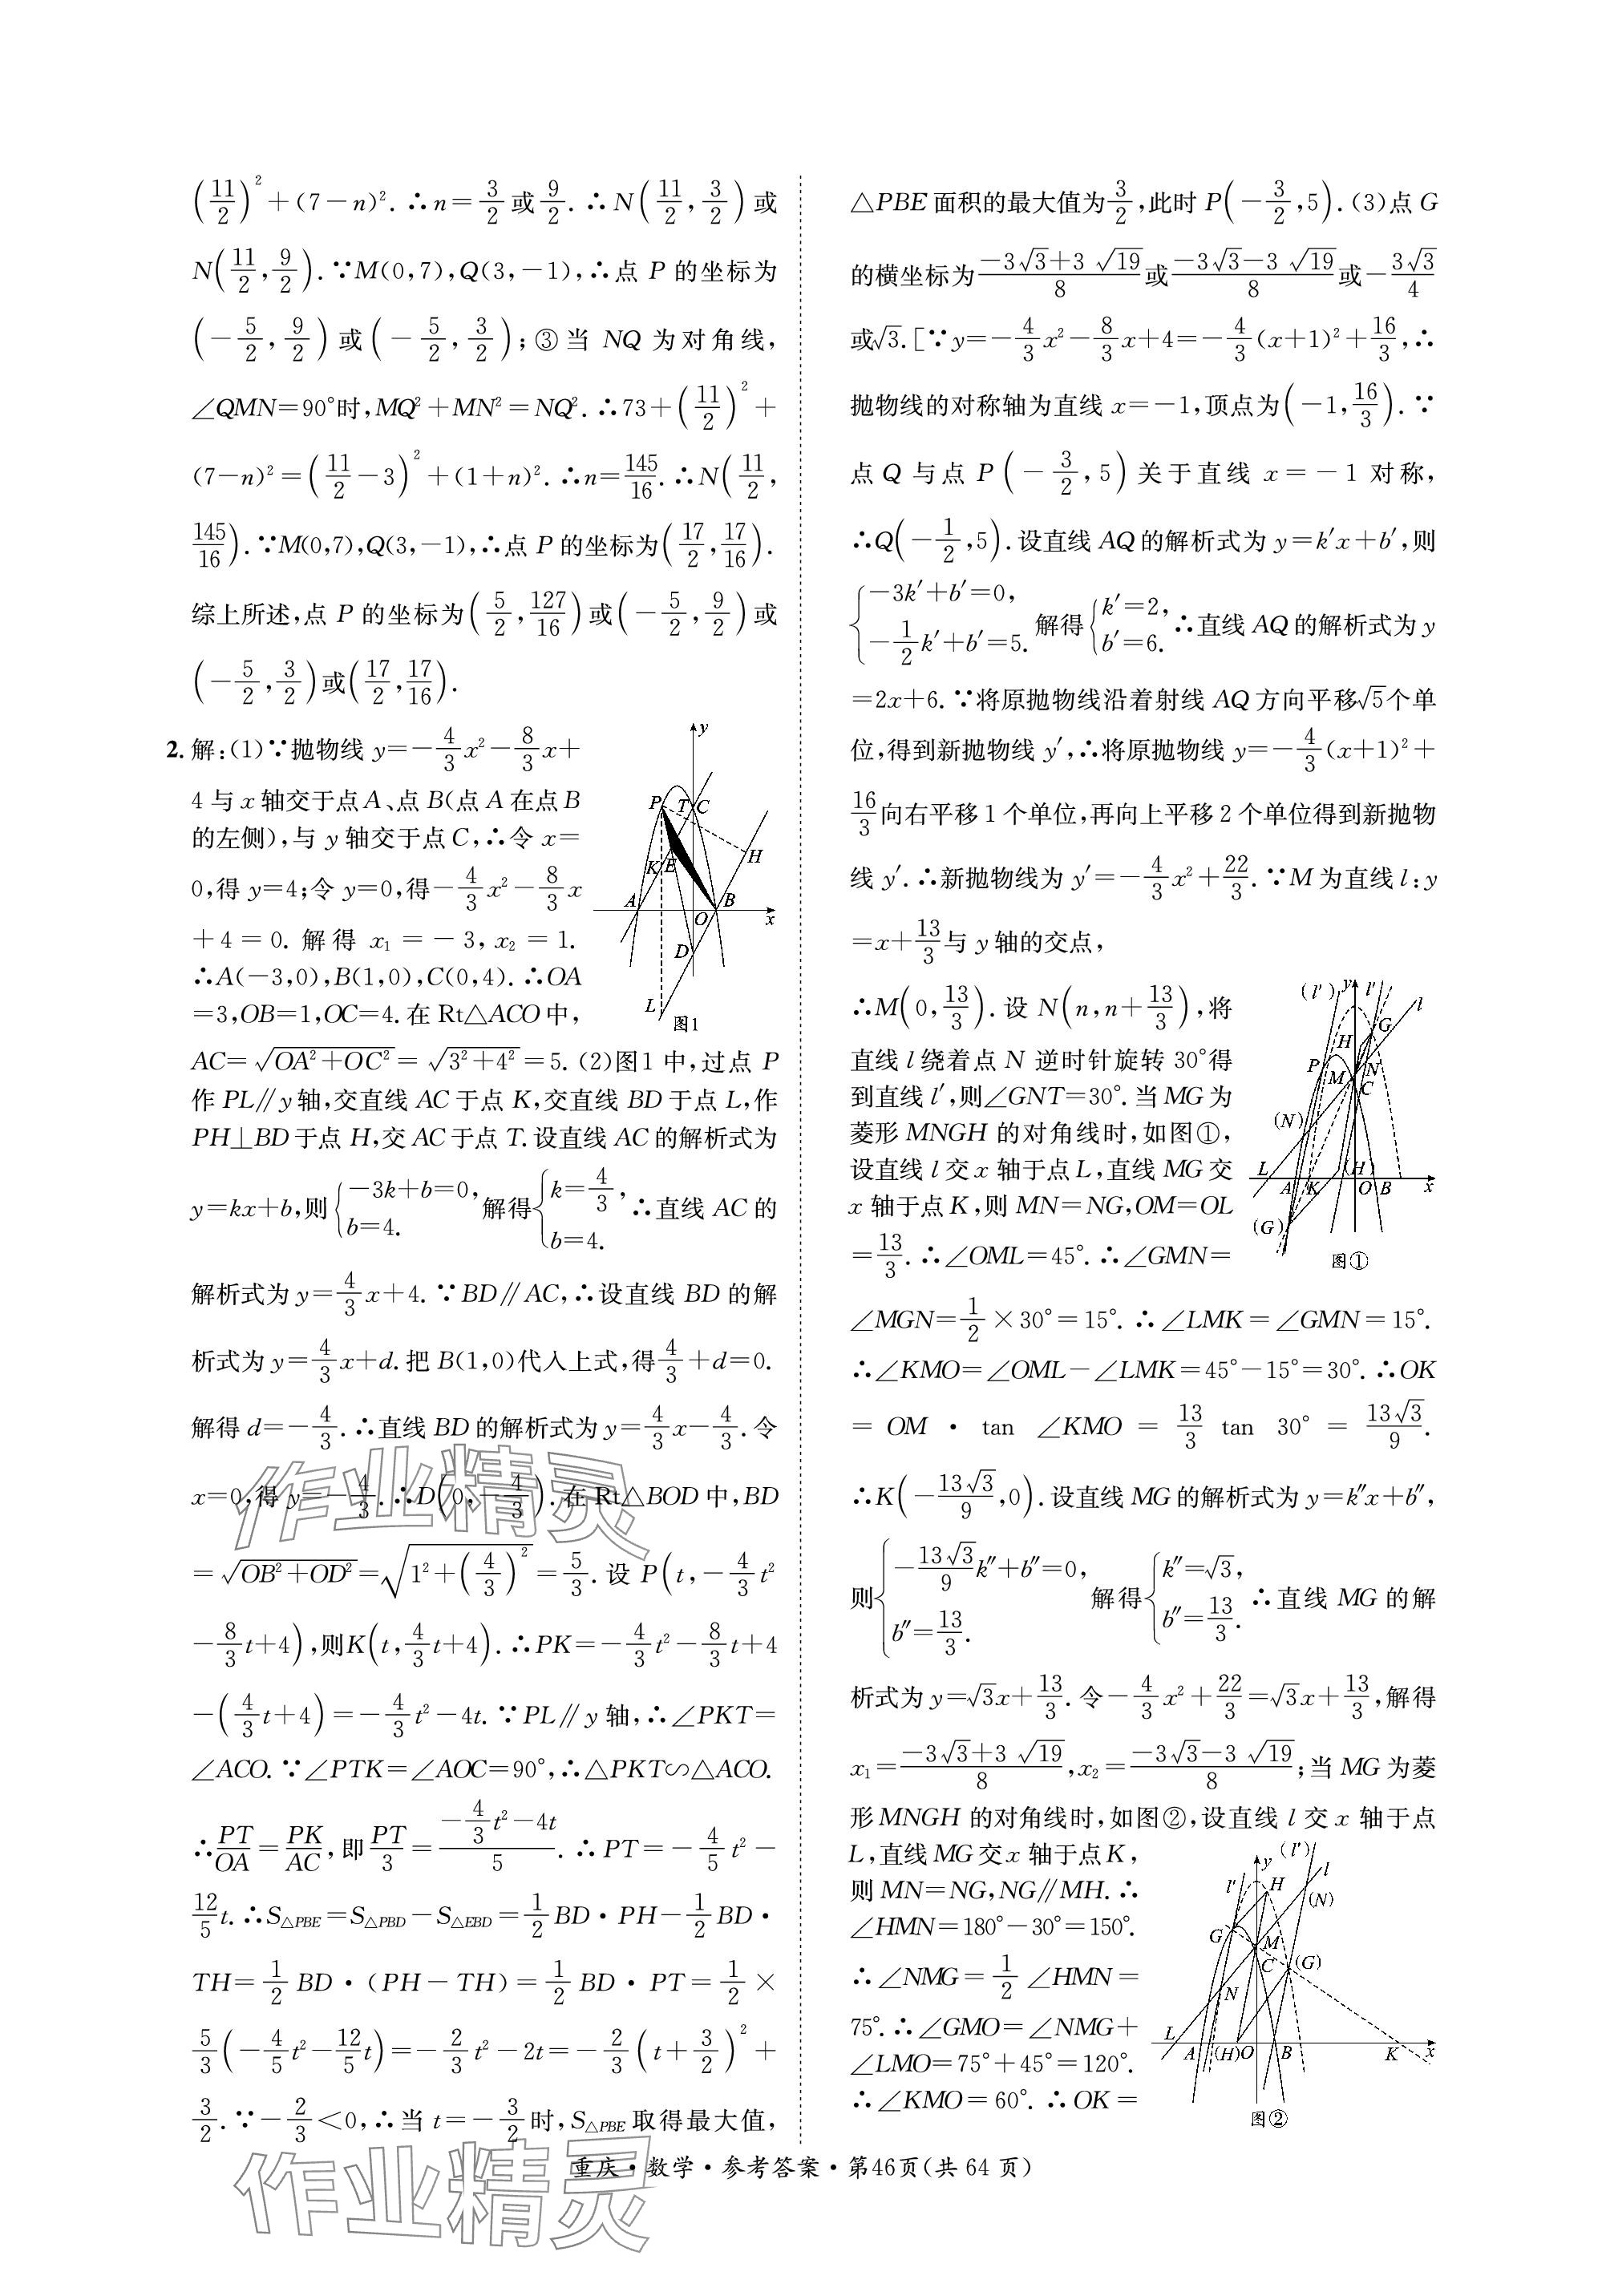 (11/2)²+(7-n)². ∴n=3/2或9/2. ∴N(11/2,3/2)或
N(11/2,9/2). ∵M(0,7),Q(3,-1),∴点 P 的坐标为
(-5/2,9/2)或(-5/2,3/2);③当 NQ 为对角线,
∠QMN=90°时,MQ²+MN²=NQ². ∴73+(11/2)²+
(7-n)²=(11/2-3)²+(1+n)². ∴n=145/16. ∴N(11/2,
145/16). ∵M(0,7),Q(3,-1),∴点 P 的坐标为(17/2,17/16).
综上所述,点 P 的坐标为(5/2,127/16)或(-5/2,9/2)或
(-5/2,3/2)或(17/2,17/16).
2. 解:(1)∵抛物线 y=-4/3x²-8/3x+
4与x轴交于点A、点B(点A在点B
的左侧),与 y 轴交于点C,∴令 x=
0,得 y=4;令 y=0,得-4/3x²-8/3x
+4=0. 解得 x₁=-3,x₂=1.
∴A(-3,0),B(1,0),C(0,4). ∴OA
=3,OB=1,OC=4. 在 Rt△ACO 中,
y
P
T
C
K
E
H
A
O
B
x
D
L
图1
AC=√(OA²+OC²)=√(3²+4²)=5. (2)图1 中,过点 P
作 PL∥y轴,交直线 AC 于点 K,交直线 BD 于点 L,作
PH⊥BD于点 H,交 AC于点 T. 设直线 AC 的解析式为
y=kx+b,则{-3k+b=0, b=4. 解得{k=4/3, b=4. ∴直线 AC 的
解析式为 y=4/3x+4. ∵BD∥AC,∴设直线 BD 的解
析式为 y=4/3x+d. 把 B(1,0)代入上式,得4/3+d=0.
解得 d=-4/3. ∴直线 BD 的解析式为 y=4/3x-4/3. 令
x=0,得 y=-4/3. ∴D(0,-4/3). 在 Rt△BOD 中,BD
=√(OB²+OD²)=√(1²+(4/3)²)=5/3. 设 P(t,-4/3t²
-8/3t+4),则K(t,4/3t+4). ∴PK=-4/3t²-8/3t+4
-(4/3t+4)=-4/3t²-4t. ∵PL∥y 轴,∴∠PKT=
∠ACO. ∵∠PTK=∠AOC=90°,∴△PKT∽△ACO.
∴PT/OA=PK/AC,即PT/3=(-4/3t²-4t)/5. ∴PT=-4/5t²-
12/5t. ∴S△PBE=S△PBD-S△EBD=1/2BD·PH-1/2BD·
TH=1/2BD·(PH-TH)=1/2BD·PT=1/2×
5/3(-4/5t²-12/5t)=-2/3t²-2t=-2/3(t+3/2)²+
3/2. ∵-2/3<0,∴当 t=-3/2时,S△PBE取得最大值,
△PBE面积的最大值为3/2,此时 P(-3/2,5). (3)点 G
的横坐标为(-3√3+3√19)/8或(-3√3-3√19)/8或-3√3/4
或√3. [∵y=-4/3x²-8/3x+4=-4/3(x+1)²+16/3,∴
抛物线的对称轴为直线 x=-1,顶点为(-1,16/3). ∵
点 Q 与点 P(-3/2,5)关于直线 x=-1 对称,
∴Q(-1/2,5). 设直线 AQ的解析式为 y=k′x+b′,则
{-3k′+b′=0, -1/2k′+b′=5. 解得{k′=2, b′=6. ∴直线 AQ的解析式为 y
=2x+6. ∵将原抛物线沿着射线 AQ 方向平移√5个单
位,得到新抛物线 y′,∴将原抛物线 y=-4/3(x+1)²+
16/3向右平移 1 个单位,再向上平移 2 个单位得到新抛物
线 y′. ∴新抛物线为 y′=-4/3x²+22/3. ∵M 为直线 l:y
=x+13/3与 y轴的交点,
∴M(0,13/3). 设 N(n,n+13/3),将
直线 l 绕着点 N 逆时针旋转 30°得
到直线l′,则∠GNT=30°. 当MG 为
菱形 MNGH 的对角线时,如图①,
设直线 l 交 x 轴于点L,直线 MG 交
x 轴于点K,则 MN=NG,OM=OL
=13/3. ∴∠OML=45°. ∴∠GMN=
(l′)
y
l′
l
G
H
P
M
N
C
(N)
L
A
K
(H)
O
B
x
(G)
图①
∠MGN=1/2×30°=15°. ∴∠LMK=∠GMN=15°.
∴∠KMO=∠OML-∠LMK=45°-15°=30°. ∴OK
=OM·tan ∠KMO=13/3 tan 30°=13√3/9.
∴K(-13√3/9,0). 设直线 MG 的解析式为 y=k″x+b″,
则{-13√3/9k″+b″=0, b″=13/3. 解得{k″=√3, b″=13/3. ∴直线 MG 的解
析式为 y=√3x+13/3. 令-4/3x²+22/3=√3x+13/3,解得
x₁=(-3√3+3√19)/8,x₂=(-3√3-3√19)/8;当 MG 为菱
形 MNGH 的对角线时,如图②,设直线 l 交 x 轴于点
L,直线 MG交x 轴于点K,
则 MN=NG,NG∥MH. ∴
∠HMN=180°-30°=150°.
∴∠NMG=1/2∠HMN=
75°. ∴∠GMO=∠NMG+
∠LMO=75°+45°=120°.
∴∠KMO=60°. ∴OK=
y
(l′)
l′
l
H
(N)
G
M
C
(G)
N
L
A
(H)
O
B
K
x
图②
重庆·数学·参考答案·第46页(共 64 页)
作业精灵
作业精灵